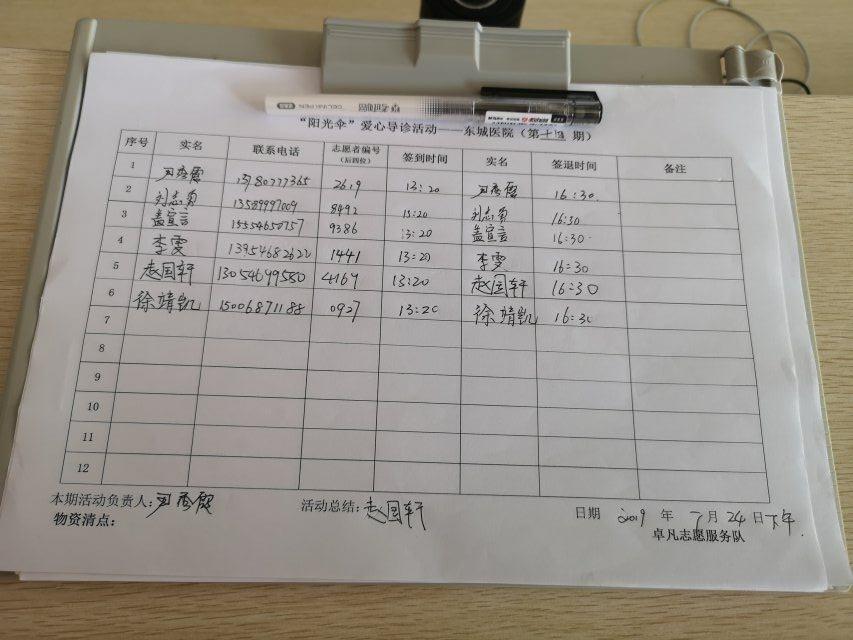 "阳光伞"爱心导诊活动——东城医院（第十四期）
序号 实名 联系电话 志愿者编号（后四位） 签到时间 实名 签退时间 备注
1 2619 13:20 16:30
2 刘志勇 13589997009 8492 13:20 刘志勇 16:30
3 盖宣言 15554650757 9386 13:20 盖宣言 16:30
4 李雯 13954682622 1441 13:20 李雯 16:30
5 赵国轩 13054699580 4169 13:20 赵国轩 16:30
6 徐靖凯 15006871188 0927 13:20 徐靖凯 16:30
7
8
9
10
11
12
本期活动负责人: 活动总结: 赵国轩 日期 2019 年 7 月 24 日下午
物资清点: 卓凡志愿服务队